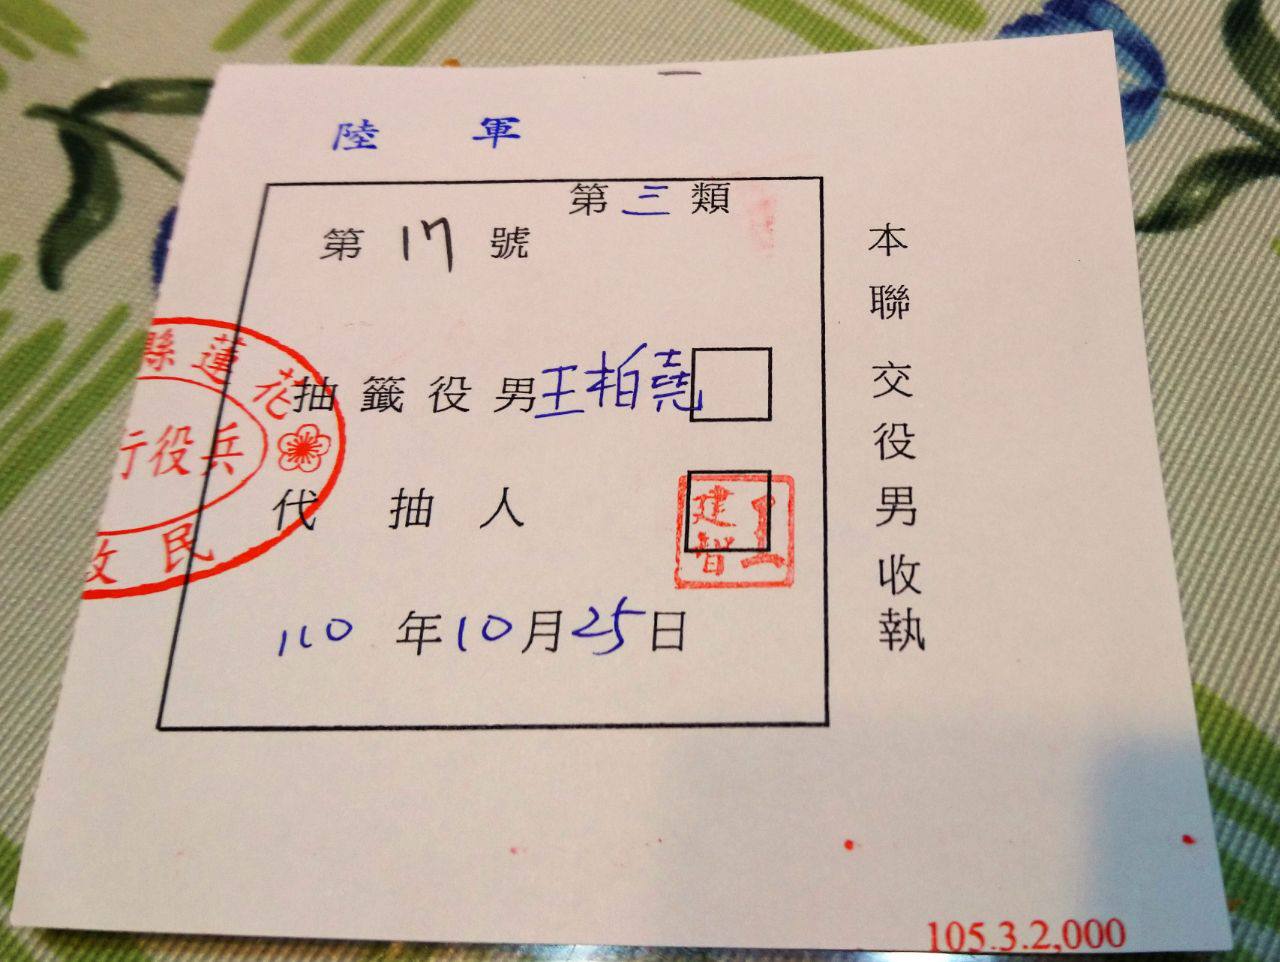 陸軍
第三類
第17號
抽籤役男王柏堯
代抽人
110年10月25日
本聯交役男收執
花蓮縣
兵役行
民政
王建智
105.3.2,000